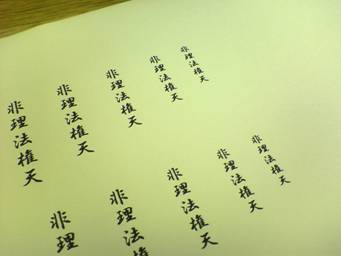 非理法権天
非理法権天
非理法権天
非理法権天
非理法権天
非理法権天
非理法権天
非理法権天
非理法
非理